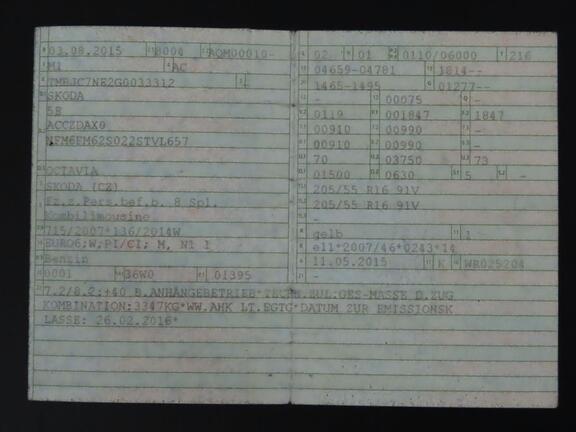 03.08.2015 8004 AQM00010-
M1 AC
TMBJC7NE2G0033312
SKODA
5E
ACCZDAX0
NFM6FM62S022STVL657
OCTAVIA
SKODA (CZ)
Fz.z.Pers.bef.b. 8 Spl.
Kombilimousine
715/2007*136/2014W
EURO6;W;PI/CI; M, N1 I
Benzin
0001 36W0 01395
02 01 0110/06000 216
04659-04781 1814--
1465-1495 01277--
- 00075 -
0119 001847 1847
00910 00990 -
00910 00990 -
70 03750 73
01500 0630 5 -
205/55 R16 91V
205/55 R16 91V
-
gelb 1
e11*2007/46*0243*14
11.05.2015 K WR025204
-
7.2/8.2:+40 B.ANHÄNGEBETRIEB*TECHN.ZUL.GES-MASSE D.ZUG
KOMBINATION:3347KG*WW.AHK LT.EGTG*DATUM ZUR EMISSIONSK
LASSE: 26.02.2016*